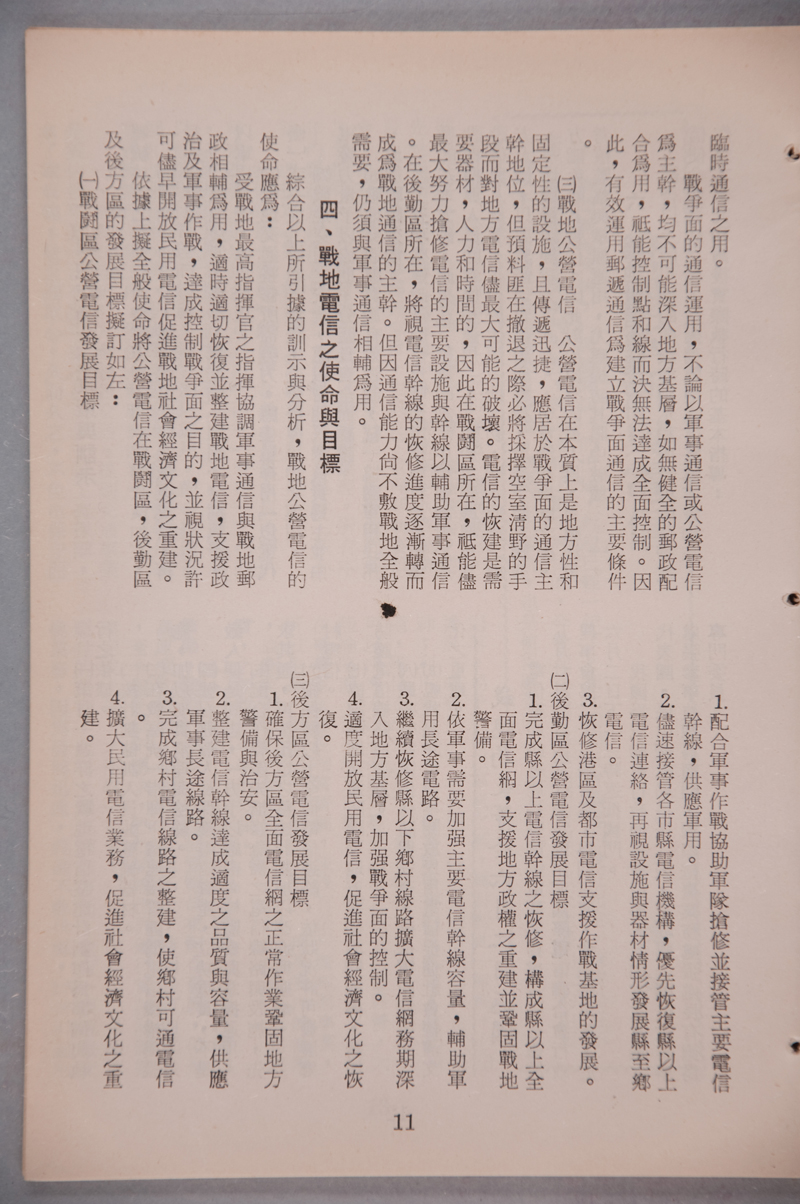 臨時通信之用。
戰爭面的通信運用，不論以軍事通信或公營電信
為主幹，均不可能深入地方基層，如無健全的郵政配
合為用，祗能控制點和線而決無法達成全面控制。因
此，有效運用郵遞通信為建立戰爭面通信的主要條件
。
㈢戰地公營電信　公營電信在本質上是地方性和
固定性的設施，且傳遞迅捷，應居於戰爭面的通信主
幹地位，但預料匪在撤退之際必將採擇空室淸野的手
段而對地方電信儘最大可能的破壞。電信的恢建是需
要器材，人力和時間的，因此在戰鬪區所在，祗能儘
最大努力搶修電信的主要設施與幹線以輔助軍事通信
。在後勤區所在，將視電信幹線的恢修進度逐漸轉而
成為戰地通信的主幹。但因通信能力尙不敷戰地全般
需要，仍須與軍事通信相輔為用。
四、戰地電信之使命與目標
綜合以上所引據的訓示與分析，戰地公營電信的
使命應為：
受戰地最高指揮官之指揮協調軍事通信與戰地郵
政相輔為用，適時適切恢復並整建戰地電信，支援政
治及軍事作戰，達成控制戰爭面之目的，並視狀況許
可儘早開放民用電信促進戰地社會經濟文化之重建。
依據上擬全般使命將公營電信在戰鬪區，後勤區
及後方區的發展目標擬訂如左：
㈠戰鬪區公營電信發展目標
1.配合軍事作戰協助軍隊搶修並接管主要電信
幹線，供應軍用。
2.儘速接管各市縣電信機構，優先恢復縣以上
電信連絡，再視設施與器材情形發展縣至鄉
電信。
3.恢修港區及都市電信支援作戰基地的發展。
㈡後勤區公營電信發展目標
1.完成縣以上電信幹線之恢修，構成縣以上全
面電信網，支援地方政權之重建並鞏固戰地
警備。
2.依軍事需要加强主要電信幹線容量，輔助軍
用長途電路。
3.繼續恢修縣以下鄉村線路擴大電信網務期深
入地方基層，加强戰爭面的控制。
4.適度開放民用電信，促進社會經濟文化之恢
復。
㈢後方區公營電信發展目標
1.確保後方區全面電信網之正常作業鞏固地方
警備與治安。
2.整建電信幹線達成適度之品質與容量，供應
軍事長途線路。
3.完成鄉村電信線路之整建，使鄉村可通電信
。
4.擴大民用電信業務，促進社會經濟文化之重
建。
11